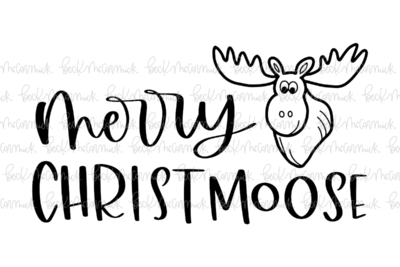 merry
CHRISTMOOSE